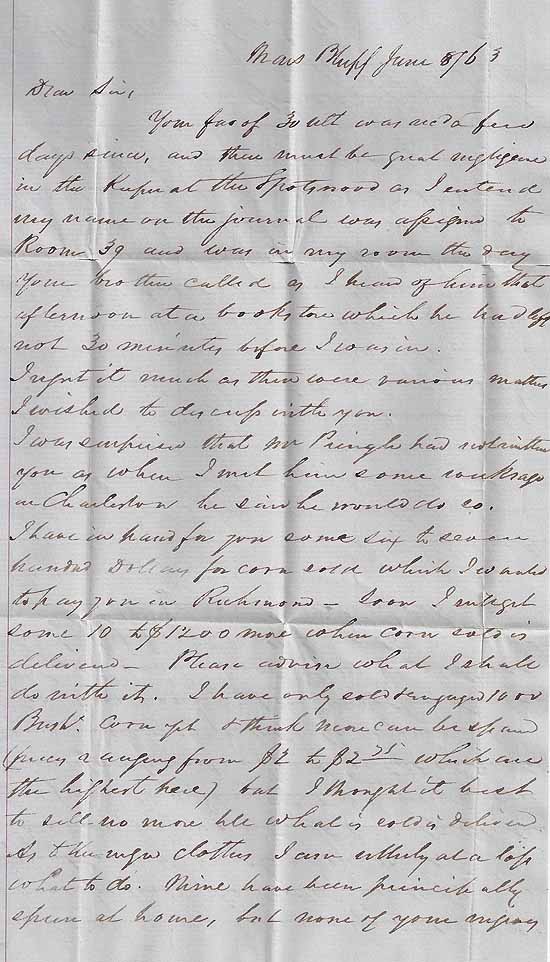 Mars Bluff June 8/63
Dear Sir,
Your fav of 30 ult was recd a few
days since, and there must be great negligence
in the Keeper at the Spotswood as I entered
my name on the journal was assigned to
Room 39 and was in my room the day
your brother called as I heard of him that
afternoon at a book store which he had left
not 30 minutes before I was in.
I regret it much as there were various matters
I wished to discuss with you.
I was surprised that Mr Pringle had not written
you as when I met him some weeks ago
in Charleston he said he would do so.
I have in hand for you some six to seven
hundred Dollars for corn sold which I wanted
to pay you in Richmond - Soon I will get
some 10 to $1200 more when corn sold is
delivered - Please advise what I shall
do with it. I have only sold & engaged 1000
Bush. Corn yet & think more can be spared
(prices ranging from $2 to $2 25 which are
the highest here) but I thought it best
to sell no more till what is sold is deliverd.
As to the negro clothes I am utterly at a loss
what to do. Mine have been principally
spun at home, but none of your negroes